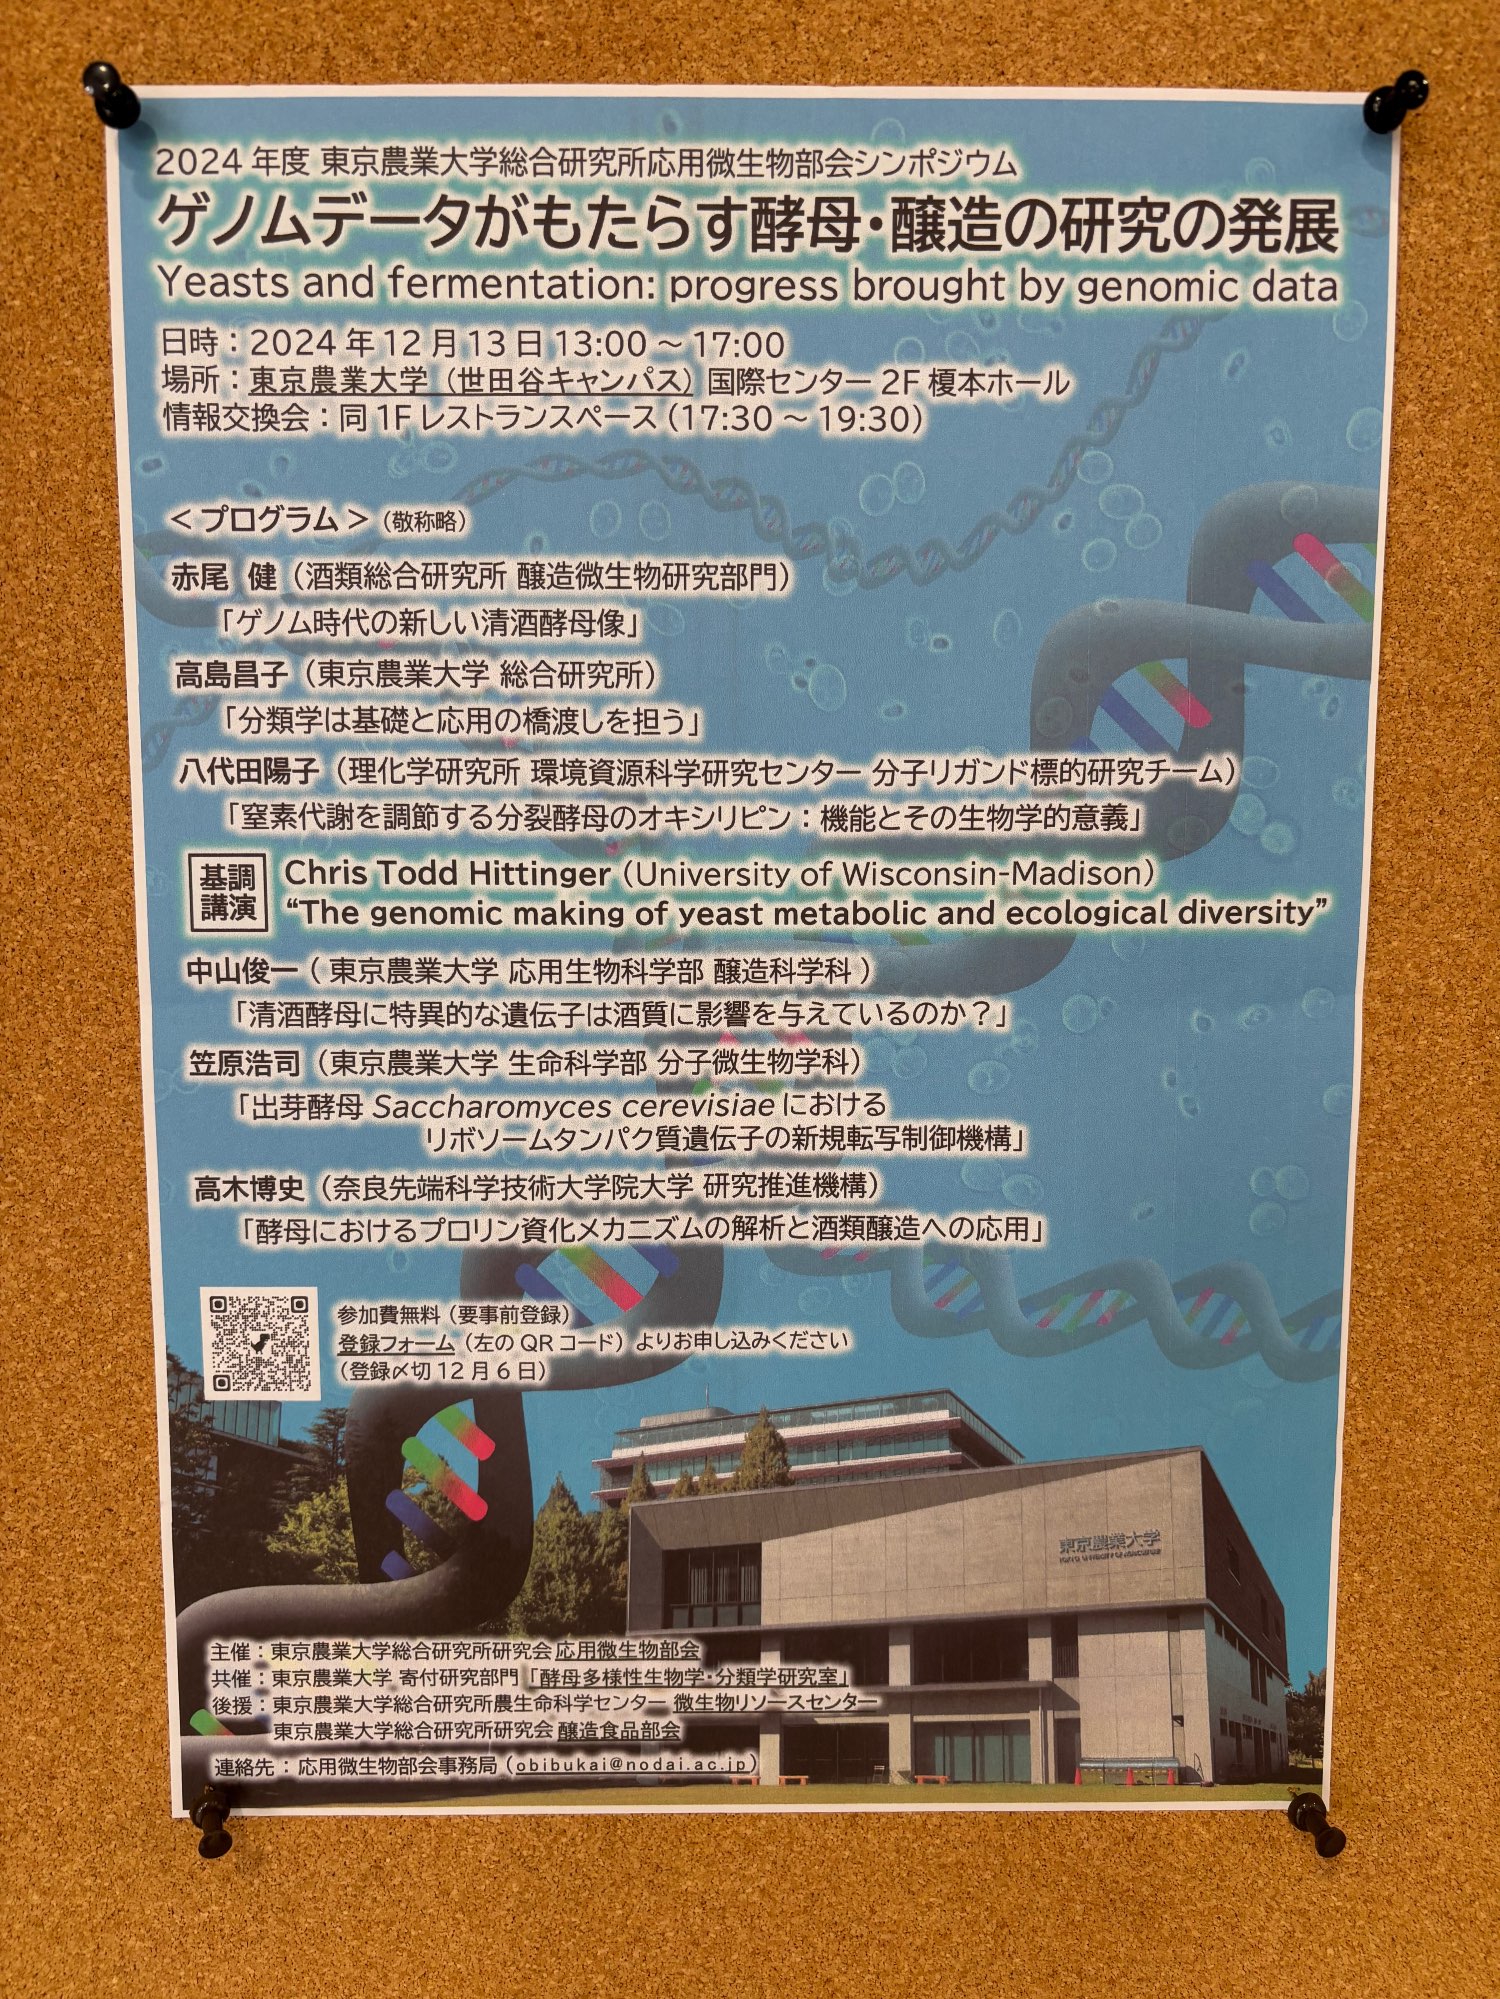 2024年度 東京農業大学総合研究所応用微生物部会シンポジウム
ゲノムデータがもたらす酵母・醸造の研究の発展
Yeasts and fermentation: progress brought by genomic data
日時：2024年12月13日 13:00～17:00
場所：東京農業大学（世田谷キャンパス）国際センター2F 榎本ホール
情報交換会：同1Fレストランスペース（17:30～19:30）
＜プログラム＞（敬称略）
赤尾 健（酒類総合研究所 醸造微生物研究部門）
「ゲノム時代の新しい清酒酵母像」
高島昌子（東京農業大学 総合研究所）
「分類学は基礎と応用の橋渡しを担う」
八代田陽子（理化学研究所 環境資源科学研究センター 分子リガンド標的研究チーム）
「窒素代謝を調節する分裂酵母のオキシリピン：機能とその生物学的意義」
基調講演
Chris Todd Hittinger（University of Wisconsin-Madison）
“The genomic making of yeast metabolic and ecological diversity”
中山俊一（東京農業大学 応用生物科学部 醸造科学科）
「清酒酵母に特異的な遺伝子は酒質に影響を与えているのか？」
笠原浩司（東京農業大学 生命科学部 分子微生物学科）
「出芽酵母 Saccharomyces cerevisiae における
リボソームタンパク質遺伝子の新規転写制御機構」
高木博史（奈良先端科学技術大学院大学 研究推進機構）
「酵母におけるプロリン資化メカニズムの解析と酒類醸造への応用」
参加費無料（要事前登録）
登録フォーム（左のQRコード）よりお申し込みください
（登録〆切12月6日）
東京農業大学
TOKYO UNIVERSITY OF AGRICULTURE
主催：東京農業大学総合研究所研究会 応用微生物部会
共催：東京農業大学 寄付研究部門「酵母多様性生物学・分類学研究室」
後援：東京農業大学総合研究所農生命科学センター 微生物リソースセンター
東京農業大学総合研究所研究会 醸造食品部会
連絡先：応用微生物部会事務局（obibukai@nodai.ac.jp）